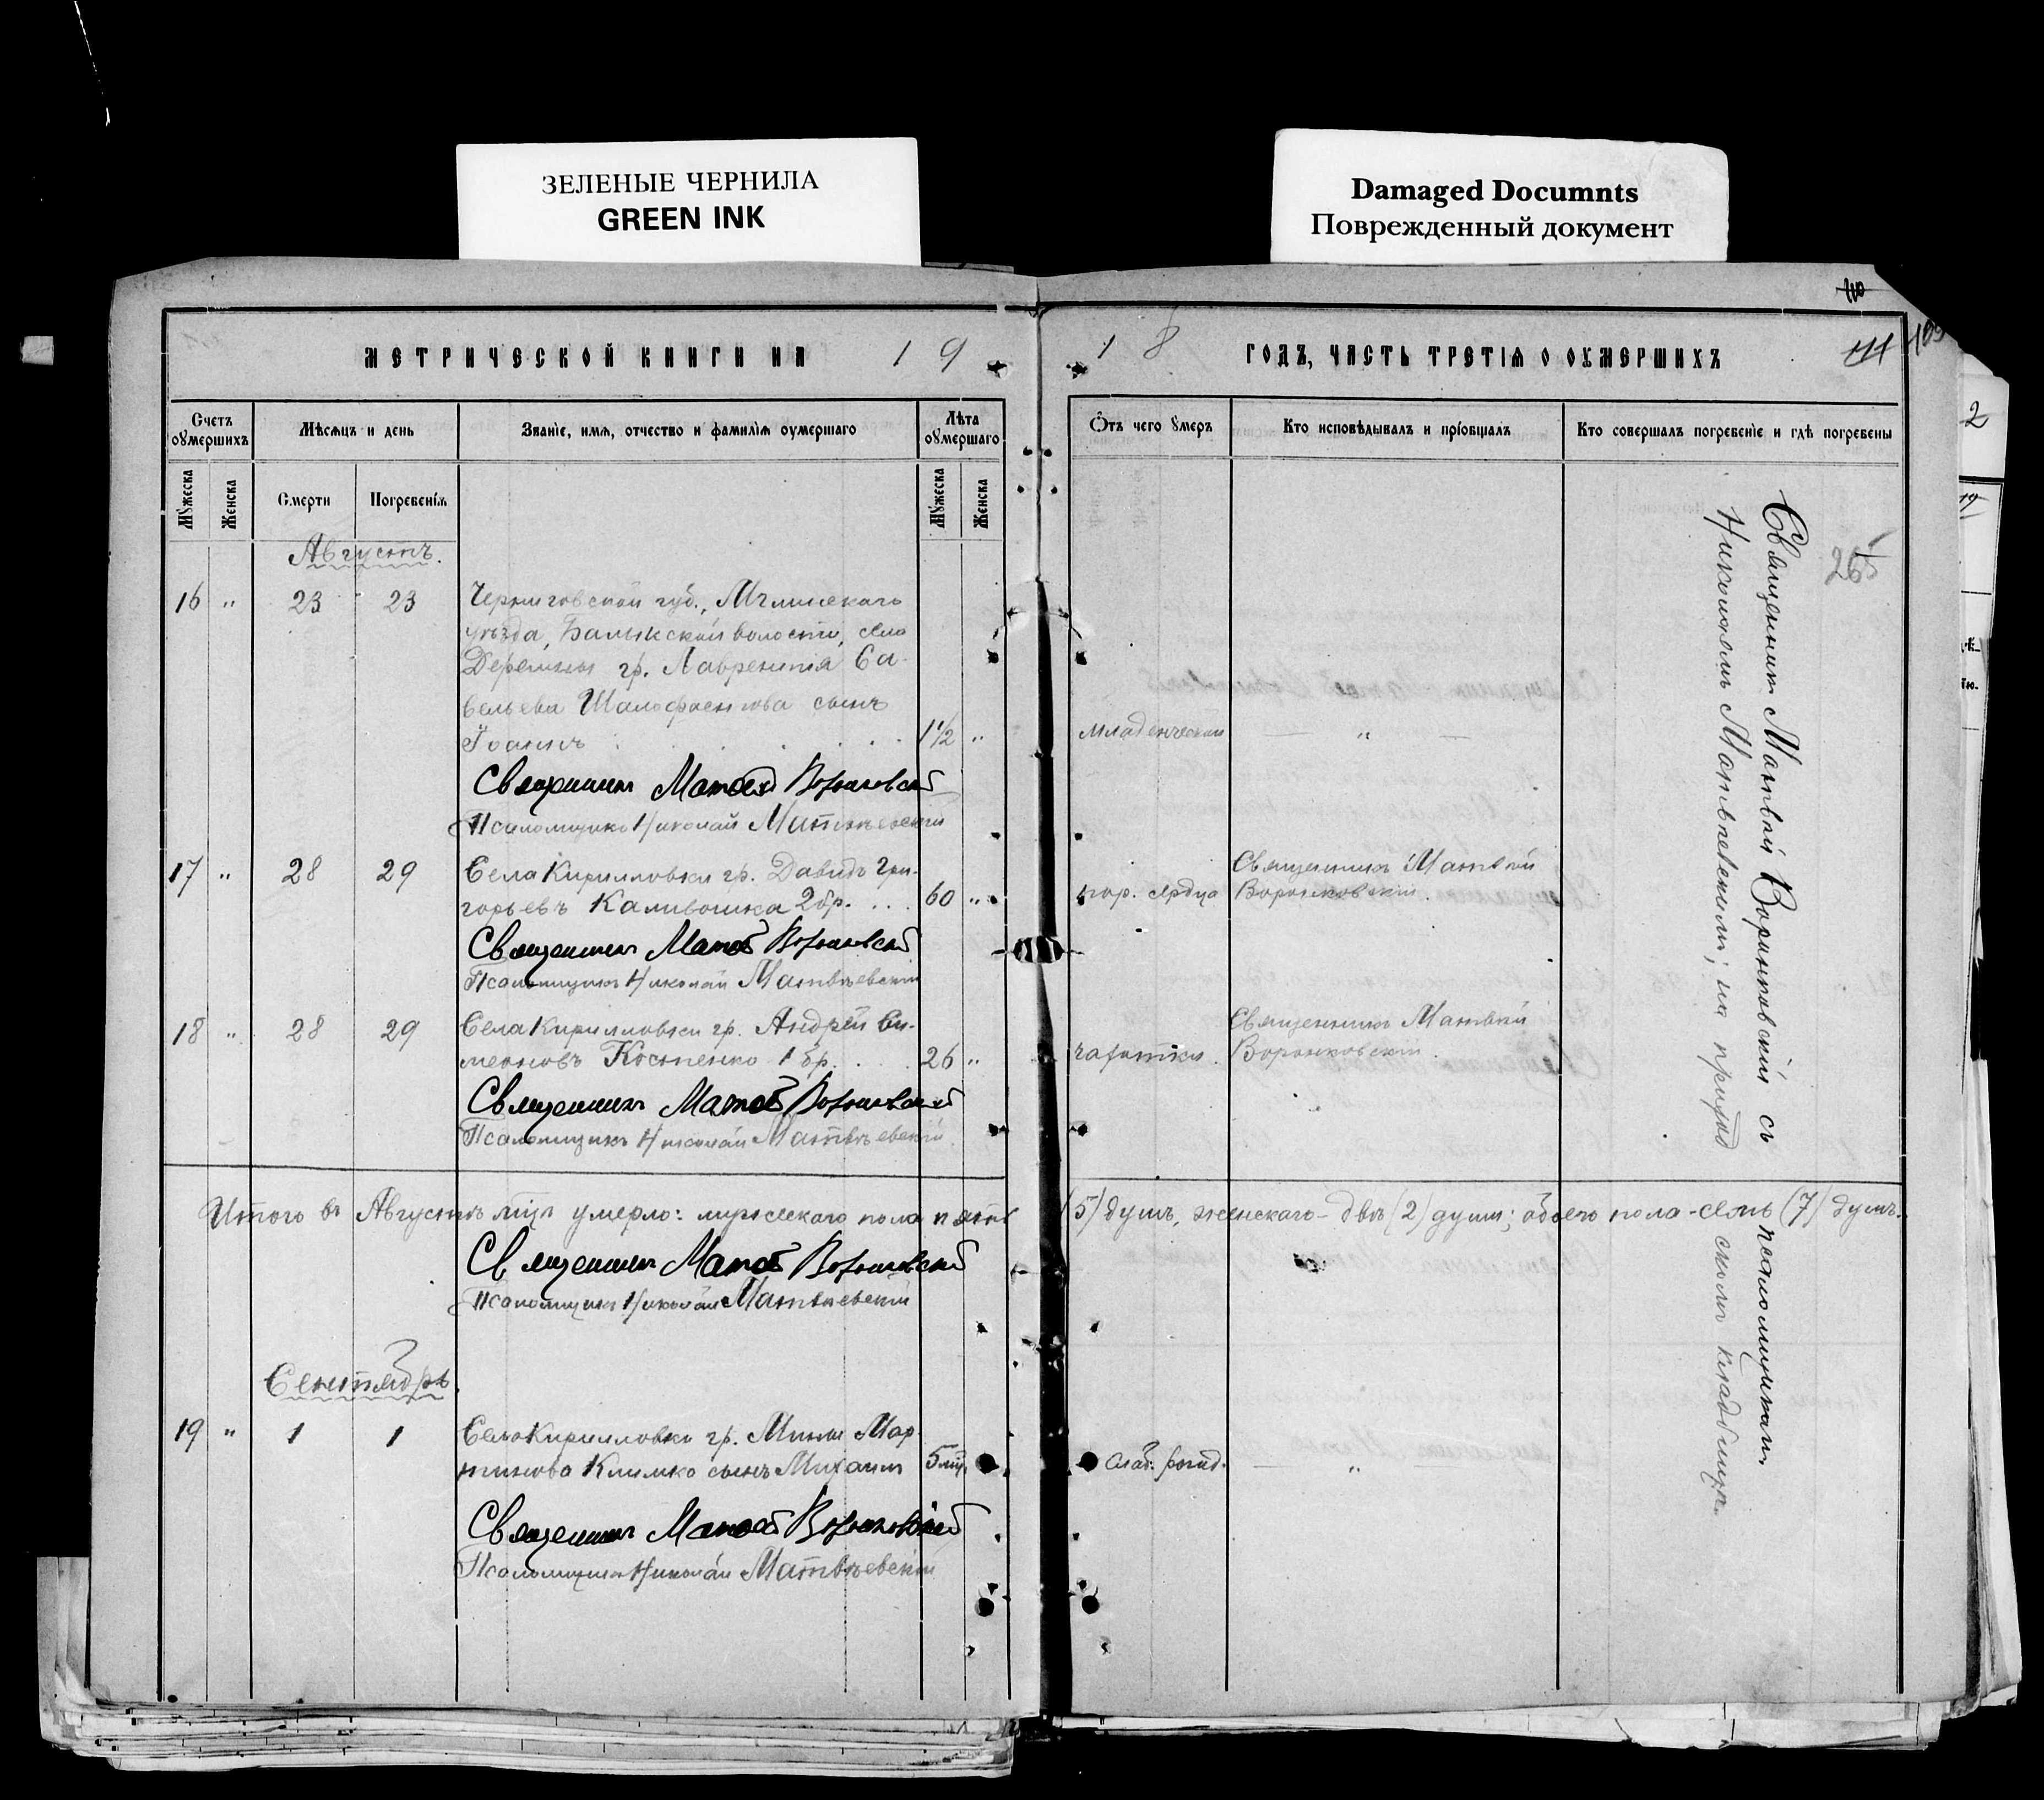 ЗЕЛЕНЫЕ ЧЕРНИЛА
GREEN INK
Damaged Documnts
Поврежденный документ
МЕТРИЧЕСКОЙ КНИГИ НА 19
18 ГОДЪ, ЧАСТЬ ТРЕТІЯ О ОУМЕРШИХЪ
110
111
109
Счетъ оумершихъ
Мѣсяцъ и день
Званіе, имя, отчество и фамилія оумершаго
Лѣта оумершаго
Отъ чего умеръ
Кто исповѣдывалъ и пріобщалъ
Кто совершалъ погребеніе и гдѣ погребены
Мужеска
Женска
Смерти
Погребенія
Мужеска
Женска
Августъ.
265
16 " 23 23 Черниговской губ., Мглинскаго
уѣзда, Балыкской волости, села
гр. Лаврентія Са-
вельева сынъ
Іоаннъ 1 1/2 " младенческой — " —
Священникъ Матвей Воронковский
Псаломщикъ Николай Матвѣевскій
17 " 28 29 Села Кирилловки гр. Давидъ Гри-
горьевъ Каливошка 2 бр. 60 " пор. сердца Священникъ Матвѣй
Воронковскій.
Священникъ Матвей Воронковский
Псаломщикъ Николай Матвѣевскій
18 " 28 29 Села Кирилловки гр. Андрей Си-
меоновъ Костенко 1 бр. 26 " чахотки. Священникъ Матвѣй
Воронковскій.
Священникъ Матвей Воронковский
Псаломщикъ Николай Матвѣевскій
Итого въ Августѣ м-цѣ умерло: мужескаго пола пять (5) душъ, женскаго - двѣ (2) души; обоего пола - семь (7) душъ.
Священникъ Матвей Воронковский
Псаломщикъ Николай Матвѣевскій
Сентябрь.
19 " 1 1 Села Кирилловки гр. Мины Мар-
тинова Климко сынъ Михаилъ 5 м-ц. слаб. рожд. — " —
Священникъ Матвей Воронковский
Псаломщикъ Николай Матвѣевскій
Священникъ Матвѣй Воронковскій съ псаломщикомъ
Николаемъ Матвѣевскимъ; на приход
скомъ кладбищѣ.